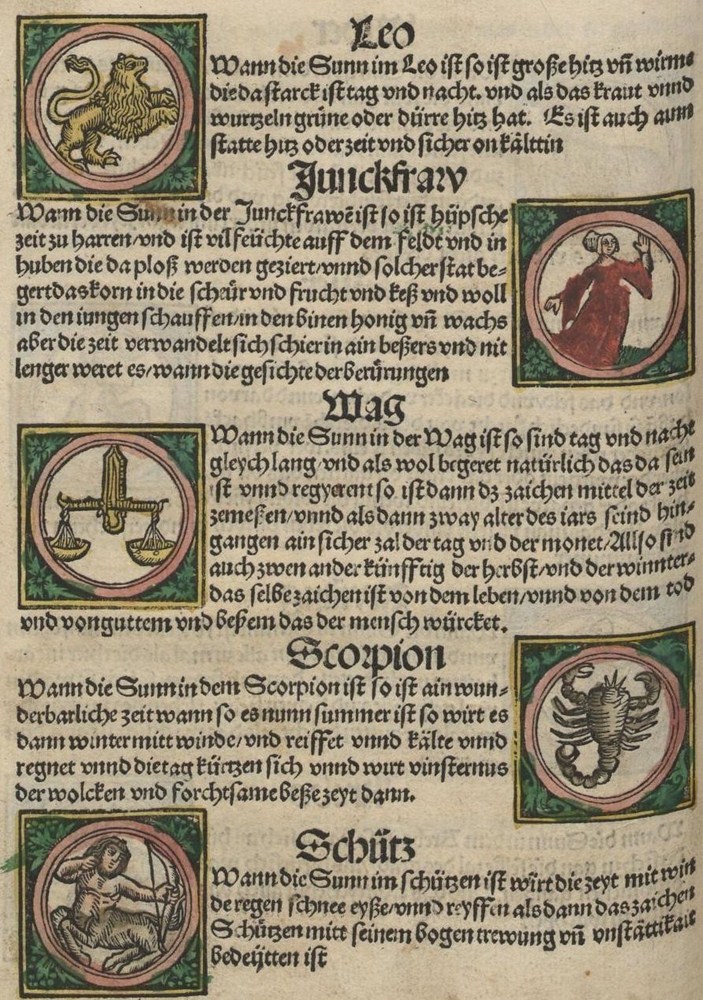 Leo
Wann die Sunn im Leo ist so ist große hitz vn̄ wirme
die da starck ist tag vnd nacht. vnd als das kraut vnnd
wurtzeln grüne oder dürre hitz hat. Es ist auch aum
statte hitz oder zeit vnd sicher on kälttin
Junckfraw
Wann die Sunn in der Junckfrawē ist so ist hüpsche
zeit zu harren/vnd ist vil feüchte auff dem feldt vnd in
huben die da ploß werden geziert/vnnd solcher stat be-
gert das korn in die scheür vnd frucht vnd keß vnd woll
in den iungen schauffen/in den binen honig vn̄ wachs
aber die zeit verwandelt sich schier in ain beßers vnd nit
lenger weret es/wann die gesichte der berürungen
Wag
Wann die Sunn in der Wag ist so sind tag vnd nacht
gleych lang/vnd als wol begeret natürlich das da sein
ist vnnd regyerent so ist dann dz zaichen mittel der zeit
zemeßen/vnnd als dann zway alter des iars seind hin-
gangen ain sicher zal der tag vnd der monet/Also sind
auch zwen ander künfftig der herbst/vnd der winnter-
das selbe zaichen ist von dem leben/vnnd von dem tod
vnd von guttem vnd beßem das der mensch würcket.
Scorpion
Wann die Sunn in dem Scorpion ist so ist ain wun-
derbarliche zeit wann so es nunn summer ist so wirt es
dann winter mitt winde/vnd reiffet vnnd kälte vnnd
regnet vnnd die tag kürtzen sich vnnd wirt vinsternus
der wolcken vnd forchtsame beße zeyt dann.
Schütz
Wann die Sunn im schützen ist wirt die zeyt mit win
de regen schnee eyße/vnnd reyffen als dann das zaichen
Schützen mitt seinem bogen trewung vn̄ vnstättikait
bedeütten ist